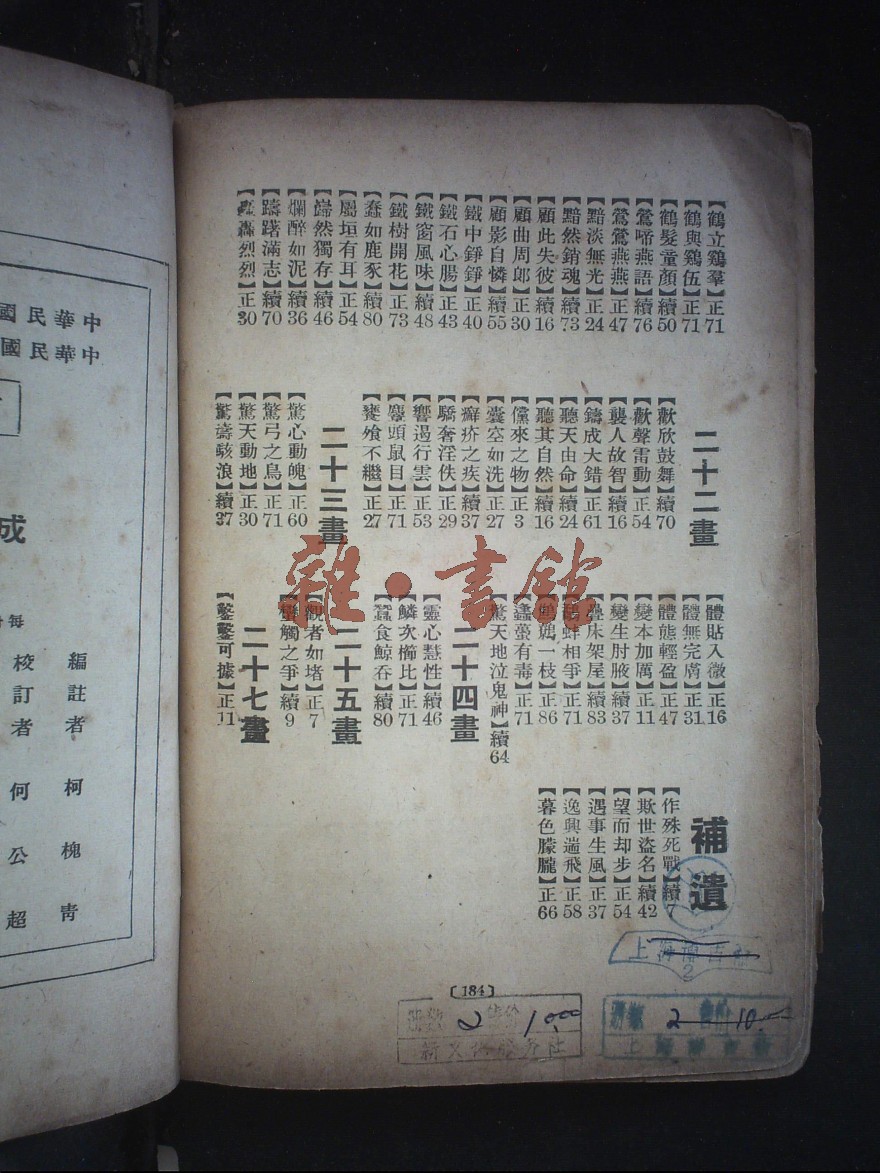 【鶴立鷄羣】正71
【鶴與鷄伍】正71
【鶴髮童顏】續50
【鶯啼燕語】續76
【鶯鶯燕燕】正47
【黯淡無光】正24
【黯然銷魂】續73
【顧此失彼】續16
【顧曲周郎】正30
【顧影自憐】續55
【鐵中錚錚】正40
【鐵石心腸】正43
【鐵窗風味】續48
【鐵樹開花】正73
【蠢如鹿豕】續80
【屬垣有耳】正54
【巋然獨存】續46
【爛醉如泥】續36
【躊躇滿志】續70
【轟轟烈烈】正30
二十二畫
【歡欣鼓舞】續70
【歡聲雷動】正54
【襲人故智】續16
【鑄成大錯】正61
【聽天由命】續24
【聽其自然】續16
【儻來之物】正3
【囊空如洗】正27
【癬疥之疾】續37
【驕奢淫佚】正29
【響遏行雲】正53
【麞頭鼠目】正71
【饔飧不繼】正27
二十三畫
【驚心動魄】正60
【驚弓之鳥】正71
【驚天動地】正30
【驚濤駭浪】續37
【體貼入微】正16
【體無完膚】正31
【體態輕盈】正47
【變本加厲】正11
【變生肘腋】續37
【疊床架屋】續83
【鷸蚌相爭】正71
【鷦鷯一枝】正86
【蠭蠆有毒】正71
【驚天地泣鬼神】續64
二十四畫
【靈心慧性】續46
【鱗次櫛比】正71
【蠶食鯨吞】續80
二十五畫
【觀者如堵】正7
【蠻觸之爭】續9
二十七畫
【鑿鑿可據】正11
補遺
【作殊死戰】續7
【欺世盜名】續42
【望而却步】正54
【遇事生風】正37
【逸興遄飛】正58
【暮色朦朧】正66
〔184〕
雜·書館
2
2 10.
2 1.000
中華民國
中華民國
成
每
編註者 柯槐青
校訂者 何公超